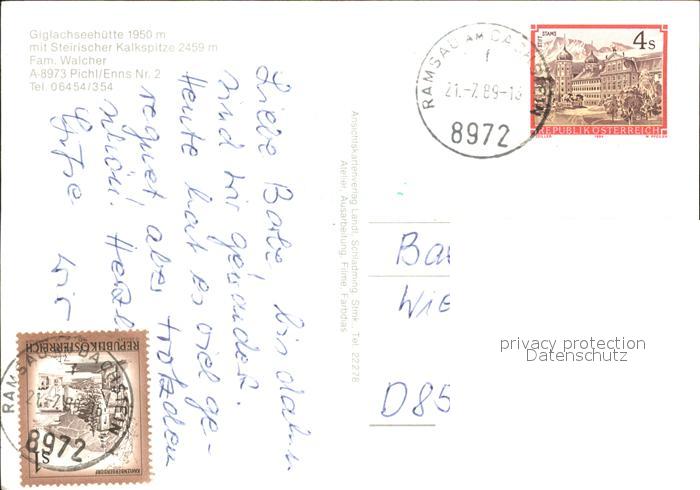 Giglachseehütte 1950 m
mit Steirischer Kalkspitze 2459 m
Fam. Walcher
A-8973 Pichl/Enns Nr. 2
Tel. 06454/354
Liebe Barbe, bis dahin
sind wir gewandert.
Heute hat es viel ge-
regnet, aber trotzdem
schön! Herzl
Grüße wir
Ansichtskartenverlag Landl, Schladming, Stmk., Tel. 22278
Atelier, Ausarbeitung, Filme, Farbdias
RAMSAU AM DACHSTEIN
f
21.-7.89-18
8972
STIFT STAMS
4 S
REPUBLIK ÖSTERREICH
Ba
Wie
D85
privacy protection
Datenschutz
REPUBLIK ÖSTERREICH
S1
RAMSAU AM DACHSTEIN
f
21.-7.89
8972